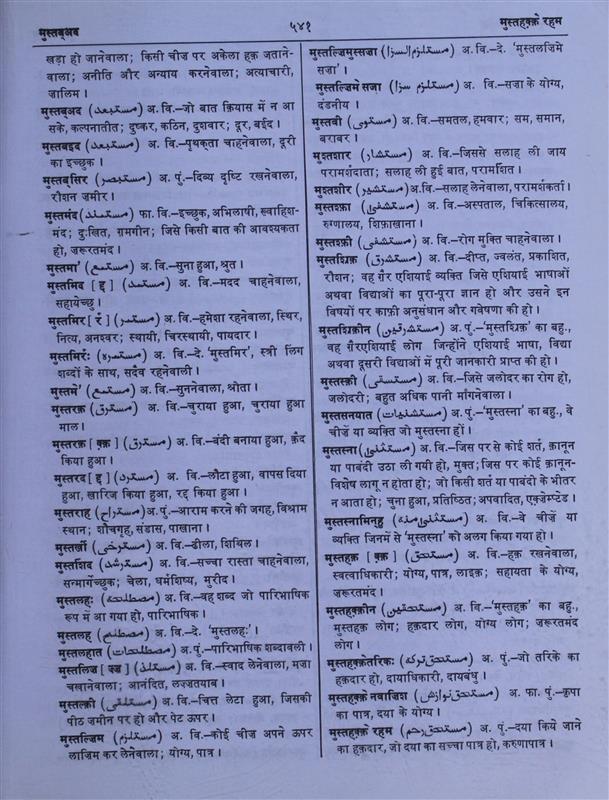 मुस्तब्अद
५४१
मुस्तहक़्क़े रहम
खड़ा हो जानेवाला; किसी चीज पर अकेला हक़ जताने-
वाला; अनीति और अन्याय करनेवाला; अत्याचारी,
जालिम।
मुस्तब्अद (مستبعد) अ. वि.–जो बात क़ियास में न आ
सके, कल्पनातीत; दुष्कर, कठिन, दुशवार; दूर, बईद।
मुस्तबइद (مستبعد) अ. वि.–पृथकता चाहनेवाला, दूरी
का इच्छुक।
मुस्तब्सिर (مستبصر) अ. पुं.–दिव्य दृष्टि रखनेवाला,
रौशन जमीर।
मुस्तमंद (مستمند) फा. वि.–इच्छुक, अभिलाषी, ख्वाहिश-
मंद; दुःखित, ग़मगीन; जिसे किसी बात की आवश्यकता
हो, जरूरतमंद।
मुस्तमा' (مستمع) अ. वि.–सुना हुआ, श्रुत।
मुस्तमिद [ द्द ] (مستمد) अ. वि.–मदद चाहनेवाला,
सहायेच्छु।
मुस्तमिर [ र्र ] (مستمر) अ. वि.–हमेशा रहनेवाला, स्थिर,
नित्य, अनश्वर; स्थायी, चिरस्थायी, पायदार।
मुस्तमिर्रः (مستمرہ) अ. वि.–दे. 'मुस्तमिर', स्त्री लिंग
शब्दों के साथ, सदैव रहनेवाली।
मुस्तमे' (مستمع) अ. वि.–सुननेवाला, श्रोता।
मुस्तरक़ (مسترق) अ. वि.–चुराया हुआ, चुराया हुआ
माल।
मुस्तरक़ [ क़्क़ ] (مسترق) अ. वि.–बंदी बनाया हुआ, क़ैद
किया हुआ।
मुस्तरद [ द्द ] (مسترد) अ. वि.–लौटा हुआ, वापस दिया
हुआ, खारिज किया हुआ, रद्द किया हुआ।
मुस्तराह (مستراح) अ. पुं.–आराम करने की जगह, विश्राम
स्थान; शौचगृह, संडास, पाखाना।
मुस्तर्खी (مسترخی) अ. वि.–ढीला, शिथिल।
मुस्तर्शिद (مسترشد) अ. वि.–सच्चा रास्ता चाहनेवाला,
सन्मार्गेच्छुक; चेला, धर्मशिष्य, मुरीद।
मुस्तलहः (مصطلحہ) अ. वि.–वह शब्द जो पारिभाषिक
रूप में आ गया हो, पारिभाषिक।
मुस्तलह (مصطلح) अ. वि.–दे. 'मुस्तलहः'।
मुस्तलहात (مصطلحات) अ. पुं.–पारिभाषिक शब्दावली।
मुस्तलिज [ ज़्ज़ ] (مستلذ) अ. वि.–स्वाद लेनेवाला, मज़ा
चखानेवाला; आनंदित, लज़्ज़तयाब।
मुस्तल्क़ी (مستلقی) अ. वि.–चित्त लेटा हुआ, जिसकी
पीठ जमीन पर हो और पेट ऊपर।
मुस्तल्जिम (مستلزم) अ. वि.–कोई चीज अपने ऊपर
लाजिम कर लेनेवाला; योग्य, पात्र।
मुस्तल्जिमुस्सज़ा (مستلزم السزا) अ. वि.–दे. 'मुस्तलज़िमे
सज़ा'।
मुस्तल्ज़िमे सज़ा (مستلزم سزا) अ. वि.–सज़ा के योग्य,
दंडनीय।
मुस्तवी (مستوی) अ. वि.–समतल, हमवार; सम, समान,
बराबर।
मुस्तशार (مستشار) अ. वि.–जिससे सलाह ली जाय
परामर्शदाता; सलाह ली हुई बात, परामर्शित।
मुस्तशीर (مستشیر) अ. वि.–सलाह लेनेवाला, परामर्शकर्ता।
मुस्तश्फ़ा (مستشفی) अ. वि.–अस्पताल, चिकित्सालय,
रुग्णालय, शिफ़ाखाना।
मुस्तश्फ़ी (مستشفی) अ. वि.–रोग मुक्ति चाहनेवाला।
मुस्तश्रिक़ (مستشرق) अ. वि.–दीप्त, ज्वलंत, प्रकाशित,
रौशन; वह ग़ैर एशियाई व्यक्ति जिसे एशियाई भाषाओं
अथवा विद्याओं का पूरा-पूरा ज्ञान हो और उसने इन
विषयों पर काफ़ी अनुसंधान और गवेषणा की हो।
मुस्तश्रिक़ीन (مستشرقین) अ. पुं.–'मुस्तश्रिक़' का बहु.,
वह ग़ैरएशियाई लोग जिन्होंने एशियाई भाषा, विद्या
अथवा दूसरी विद्याओं में पूरी जानकारी प्राप्त की हो।
मुस्तस्क़ी (مستسقی) अ. वि.–जिसे जलोदर का रोग हो,
जलोदरी; बहुत अधिक पानी माँगनेवाला।
मुस्तसनयात (مستثنیات) अ. पुं.–'मुस्तस्ना' का बहु., वे
चीज़ें या व्यक्ति जो मुस्तस्ना हों।
मुस्तस्ना (مستثنی) अ. वि.–जिस पर से कोई शर्त, क़ानून
या पाबंदी उठा ली गयी हो, मुक्त; जिस पर कोई क़ानून-
विशेष लागू न होता हो; जो किसी शर्त या पाबंदी के भीतर
न आता हो; चुना हुआ, प्रतिष्ठित; अपवादित, एक्ज़ेम्प्टेड।
मुस्तस्नामिनहु (مستثنی منہ) अ. वि.–वे चीज़ें या
व्यक्ति जिनमें से 'मुस्तस्ना' को अलग किया गया हो।
मुस्तहक़ [ क़्क़ ] (مستحق) अ. वि.–हक़ रखनेवाला,
स्वत्वाधिकारी; योग्य, पात्र, लाइक़; सहायता के योग्य,
जरूरतमंद।
मुस्तहक़्क़ीन (مستحقین) अ. वि.–'मुस्तहक़' का बहु.,
मुस्तहक़ लोग; हक़दार लोग, योग्य लोग; जरूरतमंद
लोग।
मुस्तहक़्क़ेतरिकः (مستحق ترکہ) अ. पुं.–जो तरिके का
हक़दार हो, दायाधिकारी, दायबंधु।
मुस्तहक़्क़े नवाज़िश (مستحق نوازش) अ. फा. पुं.–कृपा
का पात्र, दया के योग्य।
मुस्तहक़्क़े रहम (مستحق رحم) अ. पुं.–दया किये जाने
का हक़दार, जो दया का सच्चा पात्र हो, करुणापात्र।